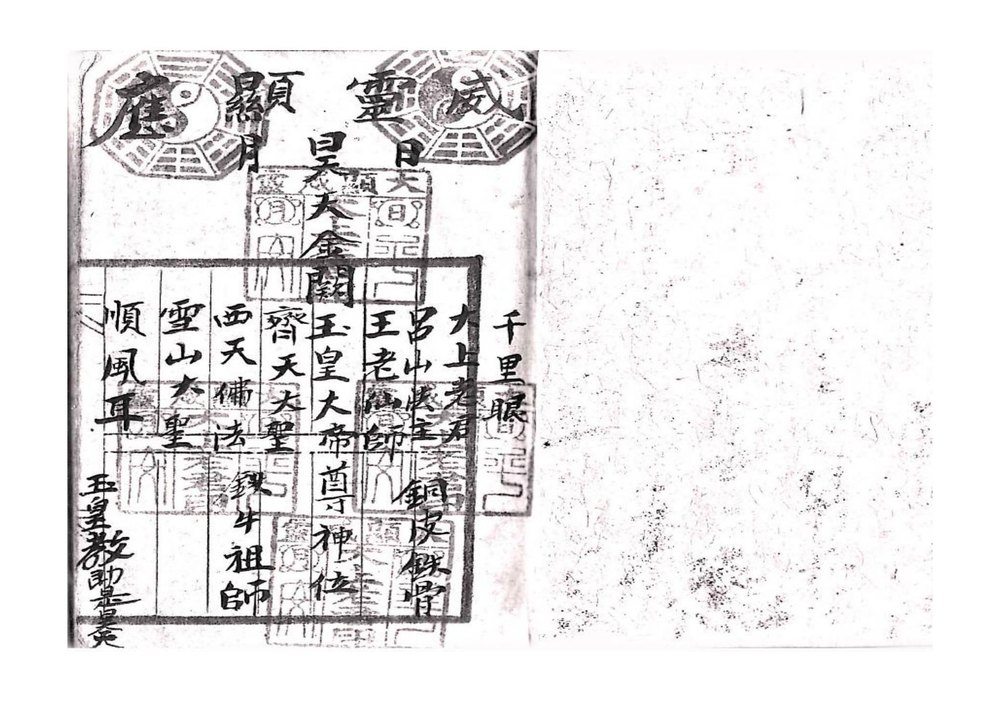 威靈顯應
日
月
昊天金闕
千里眼
太上老君
呂山法主
銅皮鉄骨
王老仙師
玉皇大帝尊神位
齊天大聖
西天佛法
鉄牛祖師
雪山大聖
順風耳
玉皇教